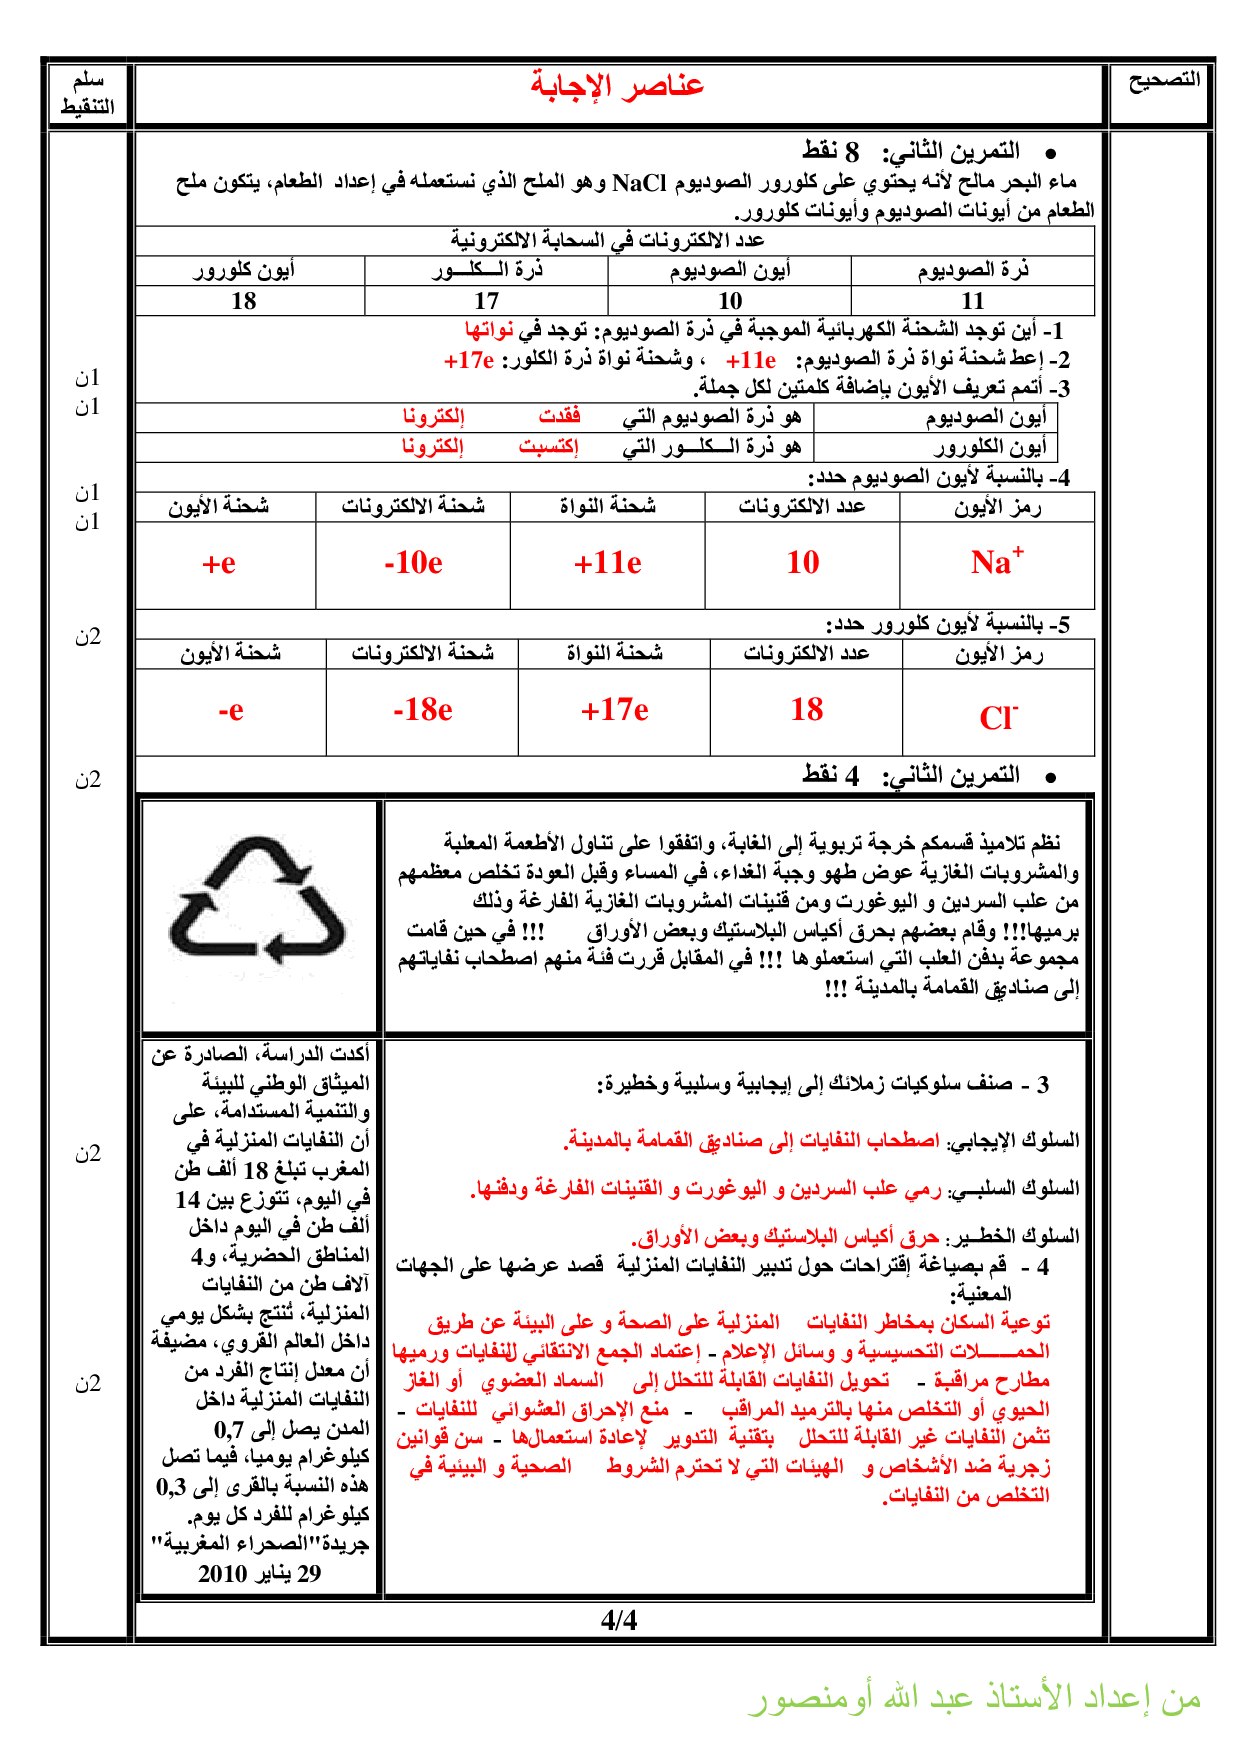 التصحيح
عناصر الإجابة
سلم
التنقيط
• التمرين الثاني: 8 نقط
ماء البحر مالح لأنه يحتوي على كلورور الصوديوم NaCl وهو الملح الذي نستعمله في إعداد الطعام، يتكون ملح
الطعام من أيونات الصوديوم وأيونات كلورور.
عدد الالكترونات في السحابة الالكترونية
ذرة الصوديوم أيون الصوديوم ذرة الـــكلـــور أيون كلورور
11 10 17 18
1- أين توجد الشحنة الكهربائية الموجبة في ذرة الصوديوم: توجد في نواتها
2- إعط شحنة نواة ذرة الصوديوم: +11e ، وشحنة نواة ذرة الكلور: +17e
1ن
3- أتمم تعريف الأيون بإضافة كلمتين لكل جملة.
1ن
أيون الصوديوم هو ذرة الصوديوم التي فقدت إلكترونا
أيون الكلورور هو ذرة الـــكلـــور التي إكتسبت إلكترونا
4- بالنسبة لأيون الصوديوم حدد:
1ن
رمز الأيون عدد الالكترونات شحنة النواة شحنة الالكترونات شحنة الأيون
1ن
Na+ 10 +11e -10e +e
5- بالنسبة لأيون كلورور حدد:
2ن
رمز الأيون عدد الالكترونات شحنة النواة شحنة الالكترونات شحنة الأيون
Cl- 18 +17e -18e -e
• التمرين الثاني: 4 نقط
2ن
نظم تلاميذ قسمكم خرجة تربوية إلى الغابة، واتفقوا على تناول الأطعمة المعلبة
والمشروبات الغازية عوض طهو وجبة الغداء، في المساء وقبل العودة تخلص معظمهم
من علب السردين و اليوغورت ومن قنينات المشروبات الغازية الفارغة وذلك
برميها!!! وقام بعضهم بحرق أكياس البلاستيك وبعض الأوراق !!! في حين قامت
مجموعة بدفن العلب التي استعملوها !!! في المقابل قررت فئة منهم اصطحاب نفاياتهم
إلى صناديق القمامة بالمدينة !!!
3 - صنف سلوكيات زملائك إلى إيجابية وسلبية وخطيرة:
السلوك الإيجابي: اصطحاب النفايات إلى صناديق القمامة بالمدينة.
2ن
السلوك السلبــي: رمي علب السردين و اليوغورت و القنينات الفارغة ودفنها.
السلوك الخطــير: حرق أكياس البلاستيك وبعض الأوراق.
4 - قم بصياغة إقتراحات حول تدبير النفايات المنزلية قصد عرضها على الجهات
المعنية:
توعية السكان بمخاطر النفايات المنزلية على الصحة و على البيئة عن طريق
الحمــــــلات التحسيسية و وسائل الإعلام - إعتماد الجمع الانتقائي للنفايات ورميها
مطارح مراقبة - تحويل النفايات القابلة للتحلل إلى السماد العضوي أو الغاز
2ن
الحيوي أو التخلص منها بالترميد المراقب - منع الإحراق العشوائي للنفايات -
تثمن النفايات غير القابلة للتحلل بتقنية التدوير لإعادة استعمالها - سن قوانين
زجرية ضد الأشخاص و الهيئات التي لا تحترم الشروط الصحية و البيئية في
التخلص من النفايات.
أكدت الدراسة، الصادرة عن
الميثاق الوطني للبيئة
والتنمية المستدامة، على
أن النفايات المنزلية في
المغرب تبلغ 18 ألف طن
في اليوم، تتوزع بين 14
ألف طن في اليوم داخل
المناطق الحضرية، و4
آلاف طن من النفايات
المنزلية، تُنتج بشكل يومي
داخل العالم القروي، مضيفة
أن معدل إنتاج الفرد من
النفايات المنزلية داخل
المدن يصل إلى 0,7
كيلوغرام يوميا، فيما تصل
هذه النسبة بالقرى إلى 0,3
كيلوغرام للفرد كل يوم.
جريدة"الصحراء المغربية"
29 يناير 2010
4/4
من إعداد الأستاذ عبد الله أومنصور